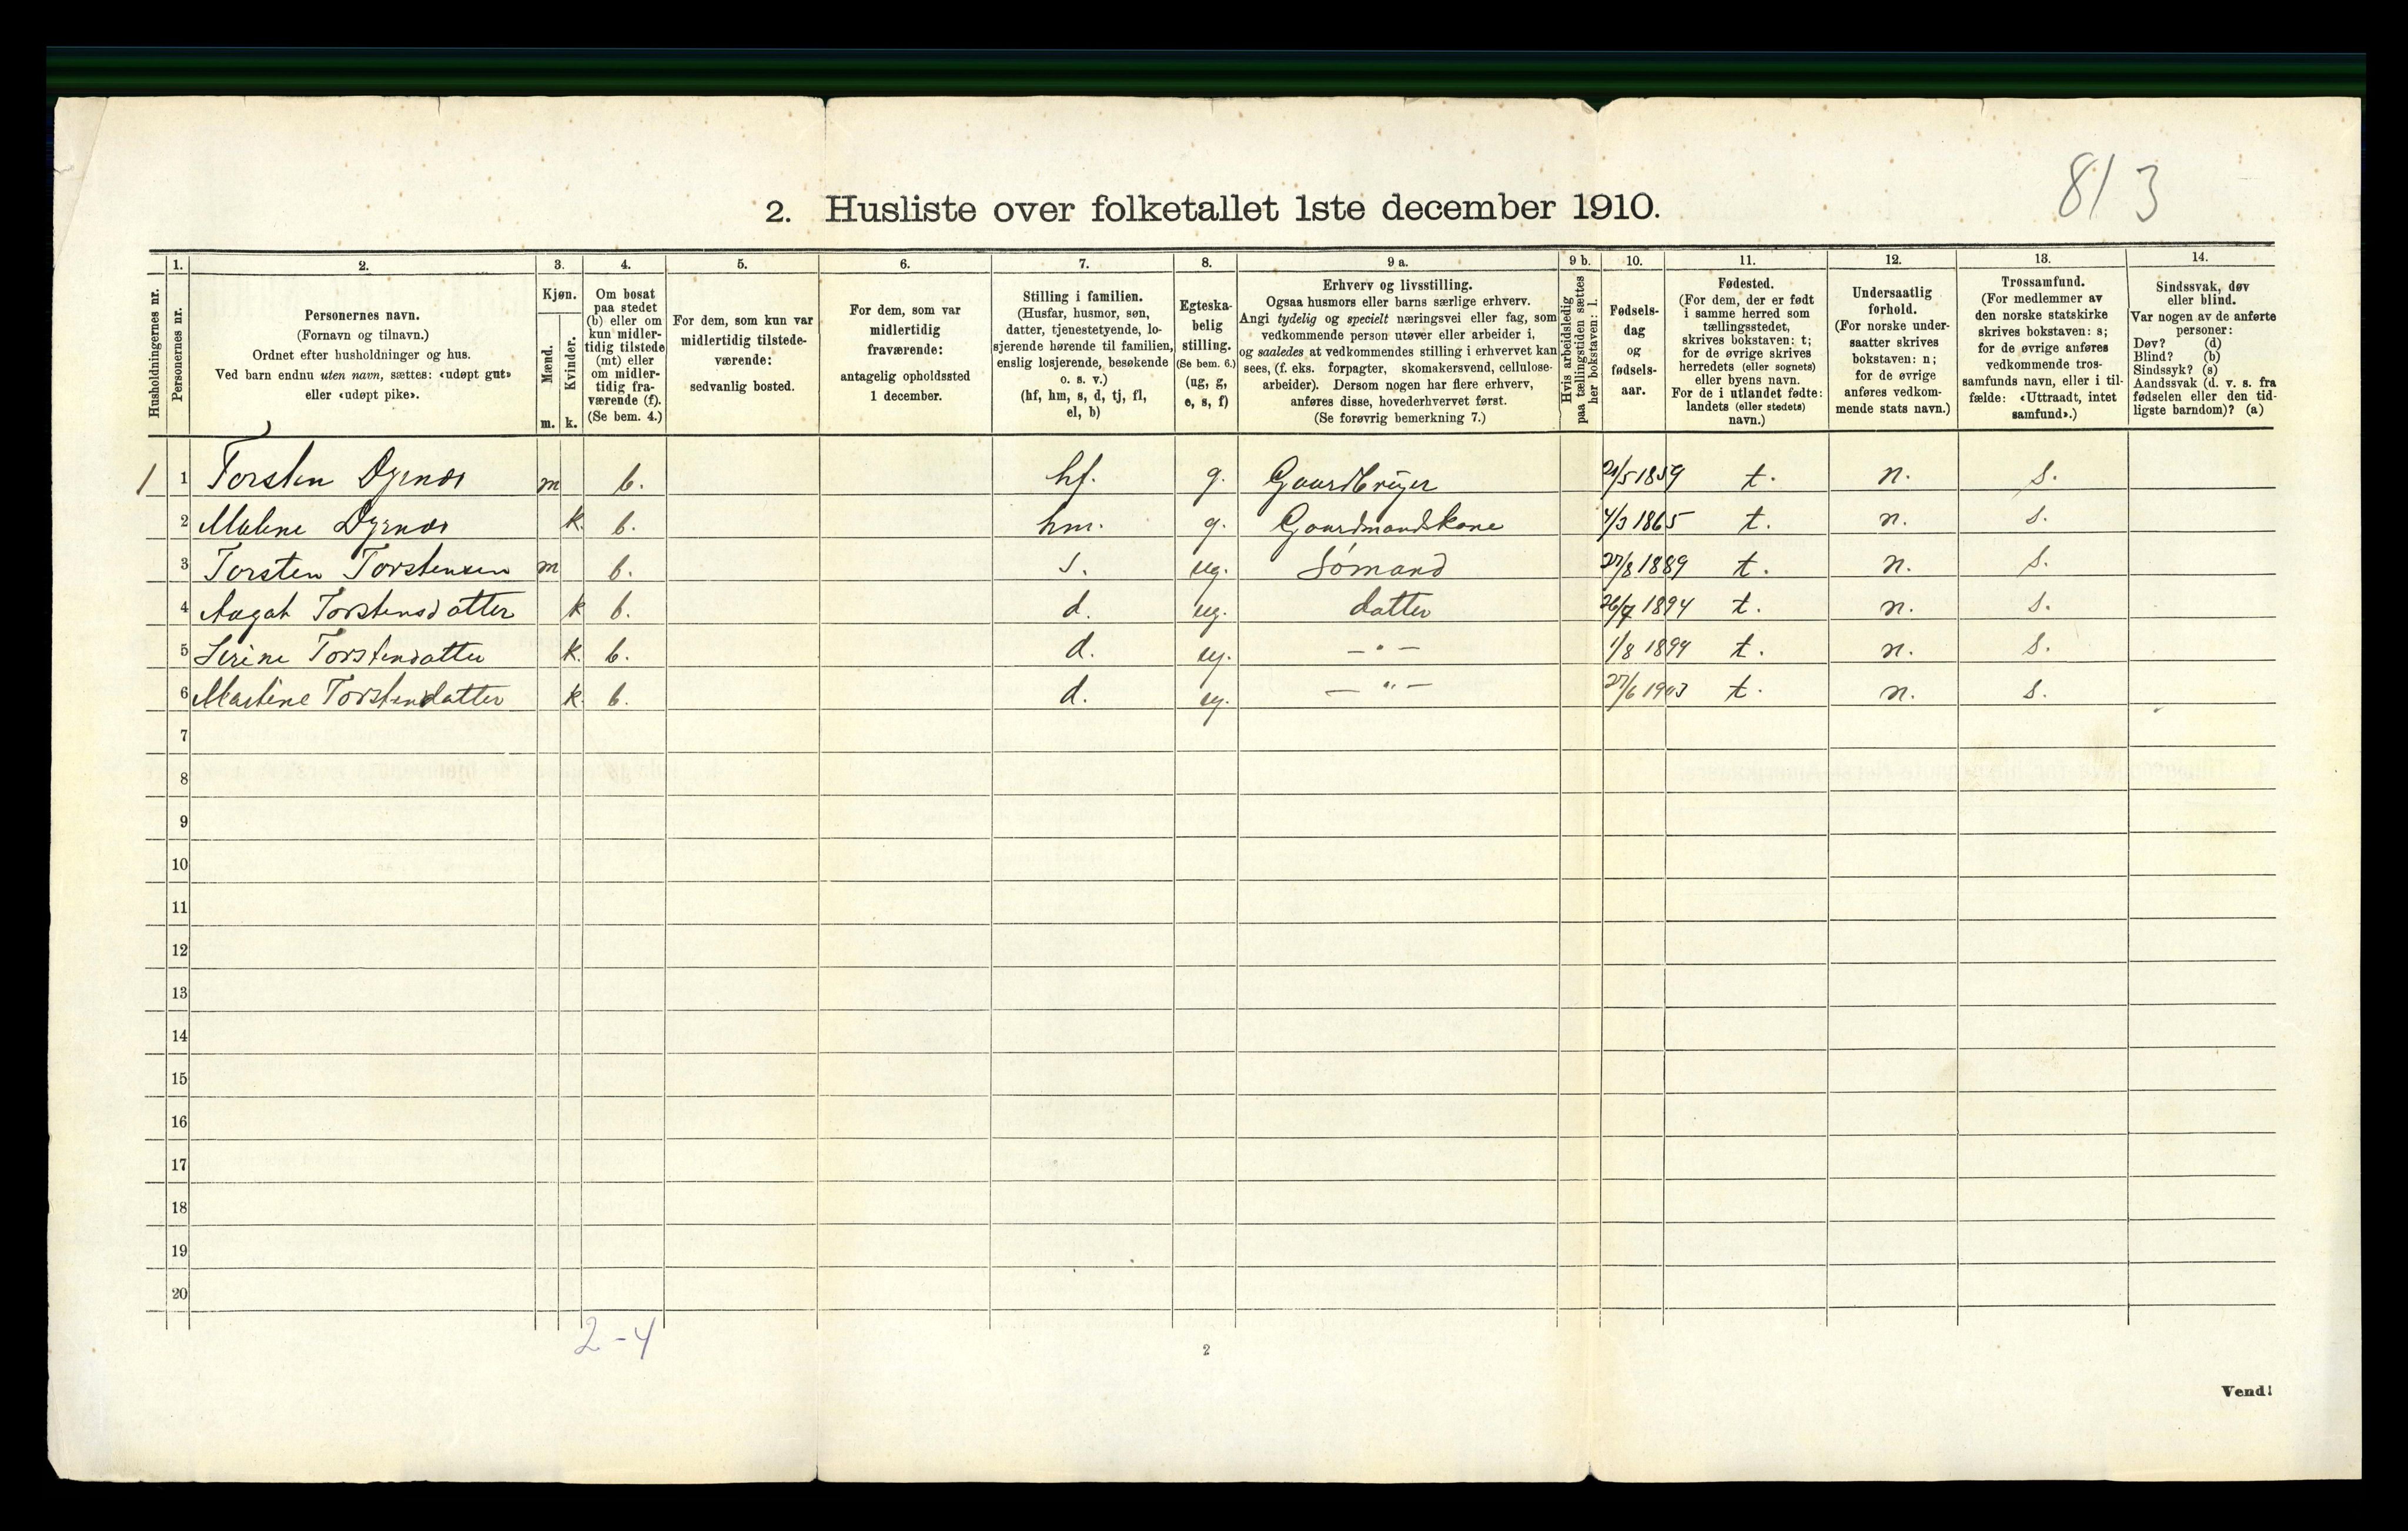 813
2. Husliste over folketallet 1ste december 1910.
Husholdningernes nr.
1.
Personernes nr.
2.
Personernes navn.
(Fornavn og tilnavn.)
Ordnet efter husholdninger og hus.
Ved barn endnu uten navn, sættes: «udøpt gut»
eller «udøpt pike».
3.
Kjøn.
Mænd.
Kvinder.
m. k.
4.
Om bosat
paa stedet
(b) eller om
kun midler-
tidig tilstede
(mt) eller
om midler-
tidig fra-
værende (f).
(Se bem. 4.)
5.
For dem, som kun var
midlertidig tilstede-
værende:
sedvanlig bosted.
6.
For dem, som var
midlertidig
fraværende:
antagelig opholdssted
1 december.
7.
Stilling i familien.
(Husfar, husmor, søn,
datter, tjenestetyende, lo-
sjerende hørende til familien,
enslig losjerende, besøkende
o. s. v.)
(hf, hm, s, d, tj, fl,
el, b)
8.
Egteska-
belig
stilling.
(Se bem. 6.)
(ug, g,
e, s, f)
9 a.
Erhverv og livsstilling.
Ogsaa husmors eller barns særlige erhverv.
Angi tydelig og specielt næringsvei eller fag, som
vedkommende person utøver eller arbeider i,
og saaledes at vedkommendes stilling i erhvervet kan
sees, (f. eks. forpagter, skomakersvend, cellulose-
arbeider). Dersom nogen har flere erhverv,
anføres disse, hovederhvervet først.
(Se forøvrig bemerkning 7.)
9 b.
Hvis arbeidsledig
paa tællingstiden sættes
her bokstaven: l.
10.
Fødsels-
dag
og
fødsels-
aar.
11.
Fødested.
(For dem, der er født
i samme herred som
tællingsstedet,
skrives bokstaven: t;
for de øvrige skrives
herredets (eller sognets)
eller byens navn.
For de i utlandet fødte:
landets (eller stedets)
navn.)
12.
Undersaatlig
forhold.
(For norske under-
saatter skrives
bokstaven: n;
for de øvrige
anføres vedkom-
mende stats navn.)
13.
Trossamfund.
(For medlemmer av
den norske statskirke
skrives bokstaven: s;
for de øvrige anføres
vedkommende tros-
samfunds navn, eller i til-
fælde: «Uttraadt, intet
samfund».)
14.
Sindssvak, døv
eller blind.
Var nogen av de anførte
personer:
Døv? (d)
Blind? (b)
Sindssyk? (s)
Aandssvak (d. v. s. fra
fødselen eller den tid-
ligste barndom)? (a)
1 1 Torsten Dyrnæs m b. hf. g. Gaardbruger 21/5 1859 t. n. s.
2 Malene Dyrnæs k. b. hm. g. Gaardmandskone 4/3 1865 t. n. s.
3 Torsten Torstensen m b. s. ug. Sømand 27/8 1889 t. n. s.
4 Aagat Torstensdatter k b. d. ug. datter 26/7 1894 t. n. s.
5 Serine Torstendatter k. b. d. ug. — " — 1/8 1899 t. n. s.
6 Martine Torstendatter k. b. d. ug. — " — 27/6 1903 t. n. s.
7
8
9
10
11
12
13
14
15
16
17
18
19
20
2-4
2
Vend!